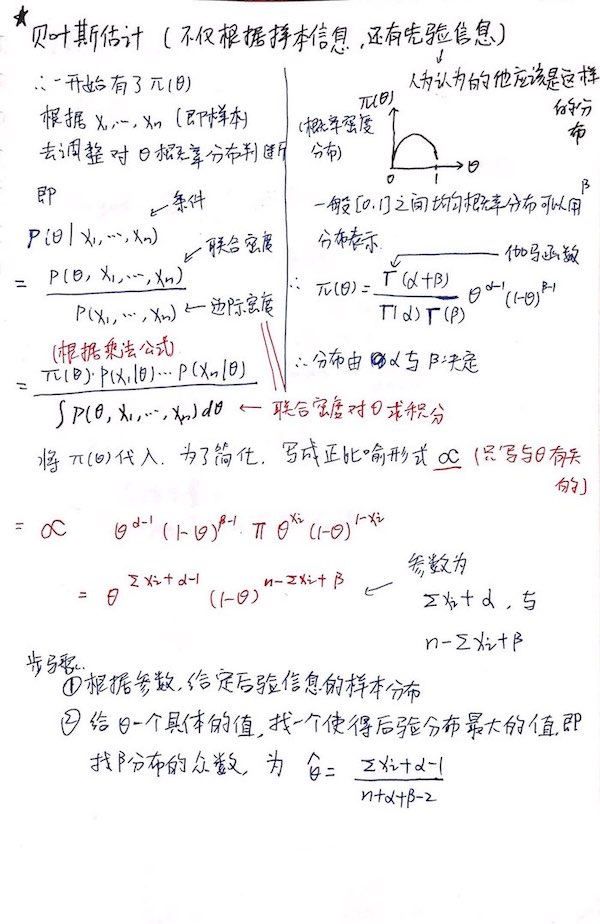 ★
贝叶斯估计（不仅根据样本信息，还有先验信息）
∴一开始有了π(θ)
根据 x₁,…,xₙ (即样本)
去调整对θ概率分布判断
即
条件
P(θ|x₁,…,xₙ)
联合密度
= P(θ, x₁,…,xₙ) / P(x₁,…,xₙ) ← 边际密度
(根据乘法公式)
= π(θ)·P(x₁|θ)…P(xₙ|θ) / ∫P(θ, x₁,…,xₙ)dθ ← 联合密度对θ求积分
人为认为的他应该是这样的分布
π(θ)
(概率密度分布)
θ
0 1
一般[0,1]之间均匀概率分布可以用β
分布表示
伽马函数
∴ π(θ) = Γ(α+β) / Γ(α)Γ(β) θ^(α-1) (1-θ)^(β-1)
∴分布由α与β决定
将π(θ)代入，为了简化，写成正比喻形式 ∝ (只写与θ有关的)
= ∝ θ^(α-1) (1-θ)^(β-1) · π θ^(xᵢ) (1-θ)^(1-xᵢ)
= θ^(Σxᵢ+α-1) (1-θ)^(n-Σxᵢ+β) ←
参数为
Σxᵢ+α，与
n-Σxᵢ+β
步骤:
①根据参数，给定后验信息的样本分布
②给θ一个具体的值，找一个使得后验分布最大的值，即
找β分布的众数，为 θ̂ = Σxᵢ+α-1 / n+α+β-2